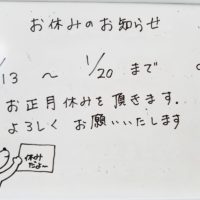 お休みのお知らせ
/13 〜 1/20 まで
お正月休みを頂きます.
よろしく お願いいたします
休み
だよー